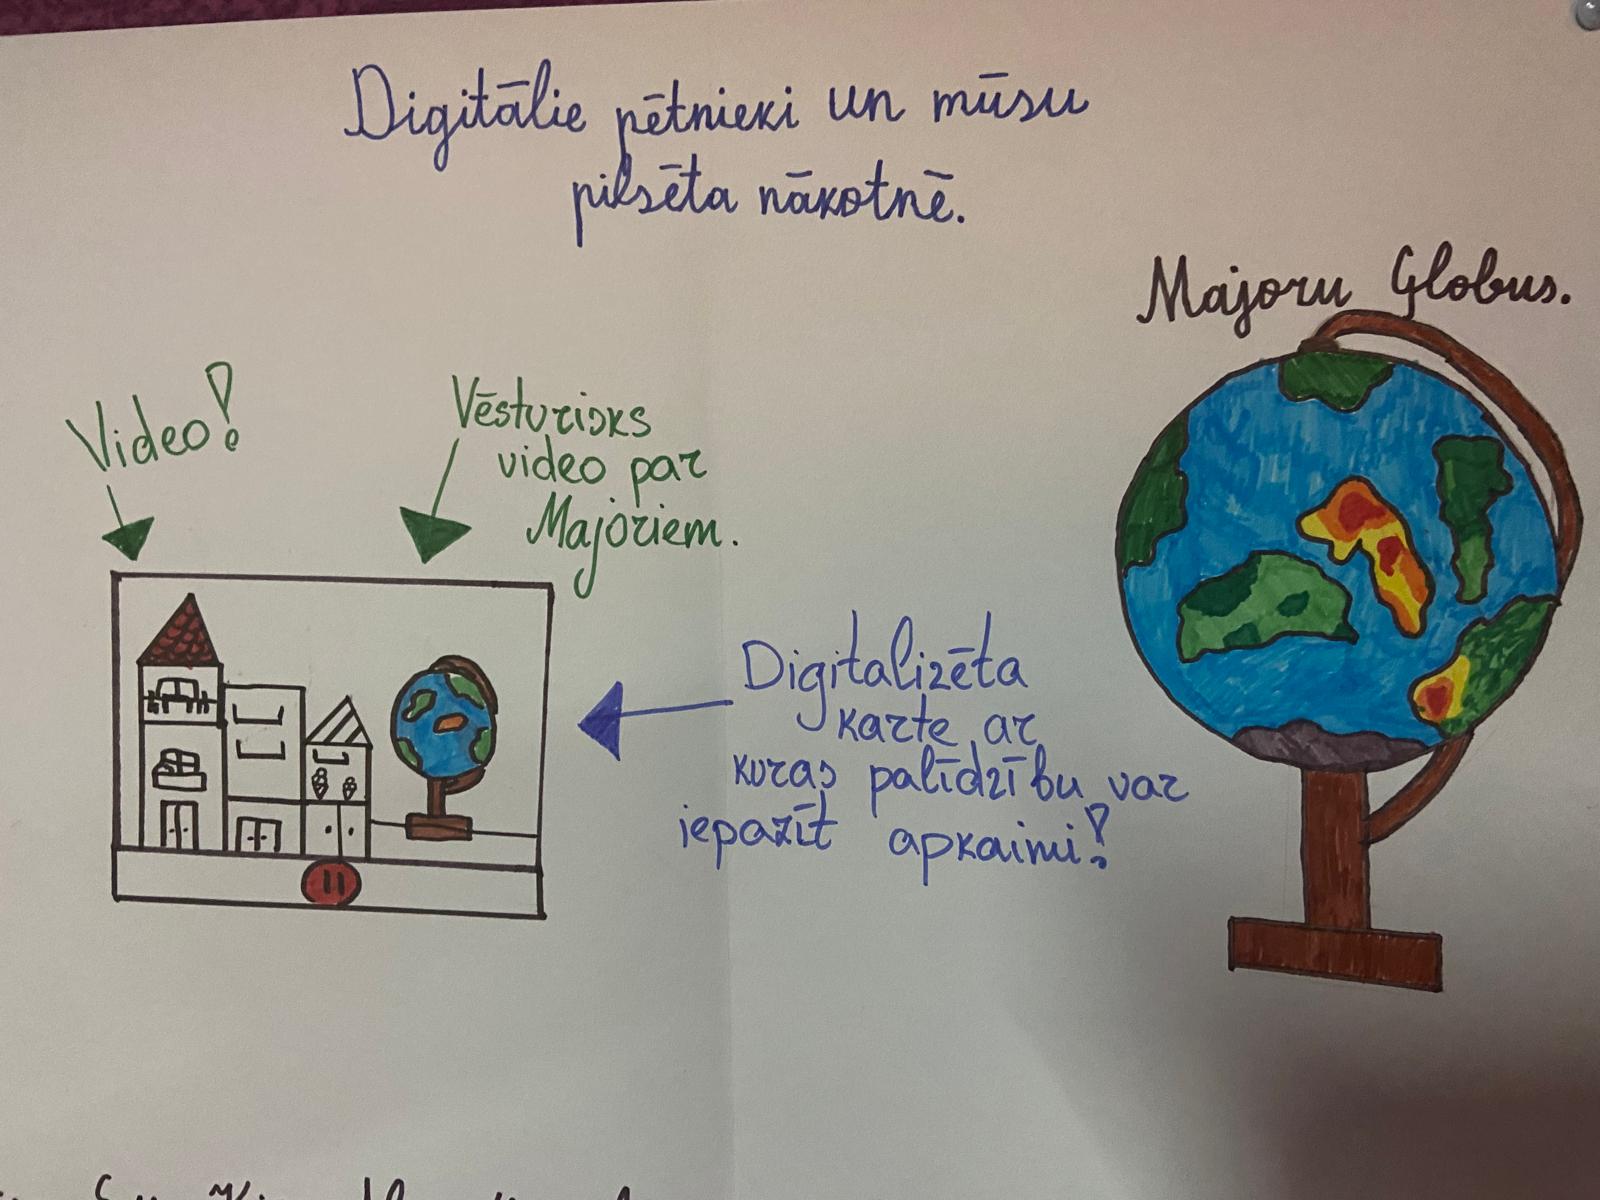 Digitālie pētnieki un mūsu
pilsēta nākotnē.
Majoru Globus.
Video!
Vēsturisks
video par
Majoriem.
Digitalizēta
karte ar
kuras palīdzību var
iepazīt apkaimi!